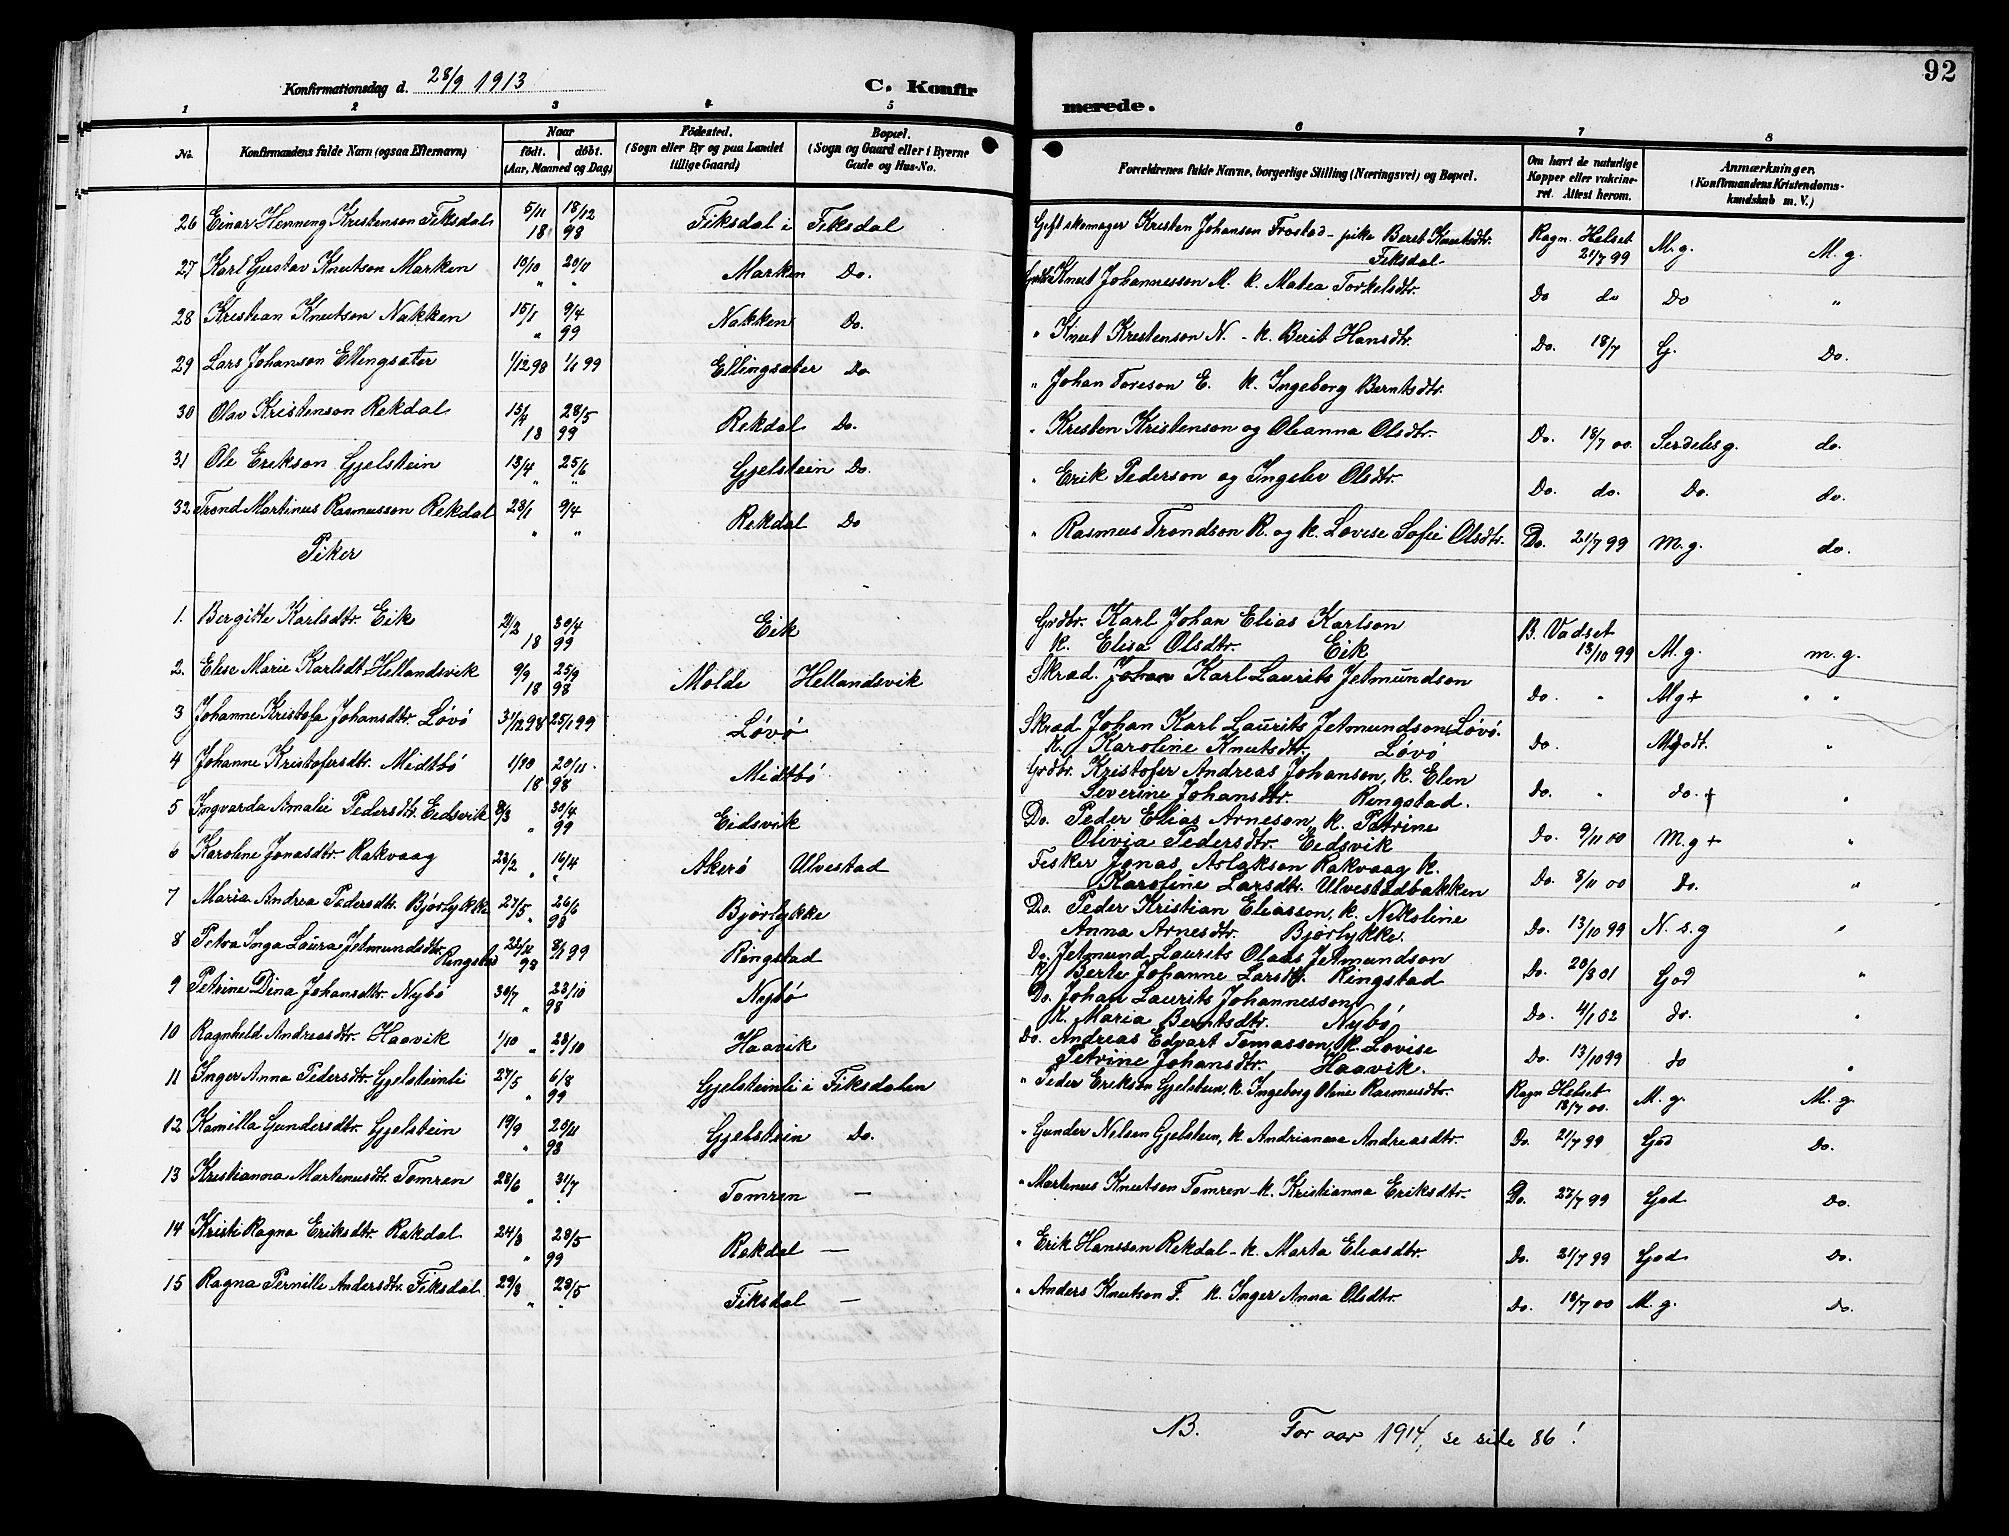 92
Konfirmationsdag d. 28/9 1913
C. Konfirmerede.
1 2 3 4 5 6 7 8
No. Konfirmandens fulde Navn (ogsaa Efternavn) Naar født. døbt. (Aar, Maaned og Dag) Fødested. (Sogn eller By og paa Landet tillige Gaard) Bopæl. (Sogn og Gaard eller i Byerne Gade og Hus-No. Forældrenes fulde Navne, borgerlige Stilling (Næringsvei) og Bopæl. Om havt de naturlige Kopper eller vakcineret. Attest herom. Anmærkninger. (Konfirmandens Kristendomskundskab m. V.)
26 Einar Henning Kristenson Fiksdal 5/11 18 18/12 98 Fiksdal i Fiksdal Gift skomager Kristen Johanson Frostad - pike Berit Knutsdtr. Fiksdal Ragn. Helset 21/7 99 M. g. M. g.
27 Karl Gustav Knutson Marken 10/10 " 20/11 " Marken Do. Knut Johannesson M. k. Matea Torkelsdtr. Do do Do "
28 Kristian Knutson Nakken 15/1 " 9/4 99 Nakken Do. " Knut Kristenson N. - k. Berit Hansdtr. Do. 18/7 G. Do.
29 Lars Johanson Ellingsæter 1/12 98 1/1 99 Ellingsæter Do " Johan Toreson E. k. Ingeborg Berntsdtr.
30 Olav Kristenson Rekdal 13/4 18 28/5 99 Rekdal Do. " Kristen Kristenson og Oleanna Olsdtr. Do. 18/7 00. Serdeles g. do.
31 Ole Erikson Gjelstein 13/4 " 25/6 " Gjelstein Do. " Erik Pederson og Ingelev Olsdtr. Do. do. Do. do.
32 Trond Martinus Rasmusson Rekdal 23/1 " 9/4 " Rekdal Do " Rasmus Trondson R. og k. Lovise Sofie Olsdtr. Do. 21/7 99 M. g. do.
Piker
1. Bergitte Karlsdtr. Eik 2/2 18 30/4 99 Eik Grdbr. Karl Johan Elias Karlson
k. Elisa Olsdtr. Eik B. Vadset 13/10 99 M. g. m. g.
2. Elise Marie Karlsdt Hellandsvik 9/9 18 25/9 98 Molde Hellandsvik Skrad. Johan Karl Laurits Jetmundson Do. " M g + " "
3 Johanne Kristofa Johansdtr. Løvø 31/12 98 25/1 99 Løvø Skrad Johan Karl Laurits Jetmundson Løvø.
k. Karoline Knutsdtr. Løvø Do. Mgodt. "
4 Johanne Kristofersdtr. Midtbø 1/10 18 20/11 98 Midtbø Grdbr. Kristofer Andreas Johanson, k. Elen
Severine Johansdtr. Ringstad. Do. " do. + "
5 Ingvarda Amalie Pedersdtr. Eidsvik 8/3 " 30/4 99 Eidsvik Do. Peder Elias Arneson, k. Petrine
Olivia Pedersdtr. Eidsvik Do. 9/11 00 M. g + "
6 Karoline Jonasdtr. Rakvaag 23/2 16/4 " Akerø Ulvestad Fisker Jonas Aslakson Rakvaag k.
Karoline Larsdtr. Ulvestadbakken Do. 8/11 00 Do. "
7 Maria Andrea Pedersdtr. Bjørlykke 27/5 " 26/6 98 Bjørlykke Do. Peder Kristian Eliasson, k. Nikoline
Anna Arnesdtr. Bjørlykke. Do. 13/10 99 N. s. g "
8 Petra Inga Laura Jetmundsdtr. Ringstad 23/11 98 8/1 99 Ringstad Do. Jetmund Laurits Olaus Jetmundson
k. Berte Johanne Larsdtr. Ringstad Do. 20/8 01 God "
9 Petrine Dina Johansdtr. Nybø 30/7 " 23/10 98 Nybø Do. Johan Laurits Johannesson
k. Maria Berntsdtr. Nybø Do. 4/1 02 do. "
10 Ragnhild Andreasdtr. Haavik 1/10 " 23/10 Haavik Do. Andreas Edvart Tomasson, k. Lovise
Petrine Johansdtr. Haavik. Do. 13/10 99 do "
11 Inger Anna Pedersdtr. Gjelsteinli 27/5 " 6/8 99 Gjelsteinli i Fiksdalen " Peder Erikson Gjelstein, k. Ingeborg Oline Rasmusdtr. Ragn Helset 18/7 00. M. g. M. g.
12 Kamilla Gundersdtr. Gjelstein 19/9 " 20/11 98 Gjelstein Do. " Gunder Nelsen Gjelstein, k. Andrianna Andreasdtr. Do. 21/7 99 God Do.
13 Kristianna Martinusdtr. Tomren 28/6 " 31/7 " Tomren — " Martinus Knutson Tomren - k. Kristianna Eriksdtr. Do. 27/7 99 God Do.
14 Kristi Ragna Eriksdtr. Rekdal 24/3 " 28/5 99 Rekdal — " Erik Hansson Rekdal - k. Marta Eliasdtr. Do. 21/7 99 God Do.
15 Ragna Pernille Andersdtr. Fiksdal 29/3 " 28/5 " Fiksdal — " Anders Knutson F. k. Inger Anna Olsdtr. Do. 18/7 00 M. g. Do.
NB. For aar 1914, se side 86!